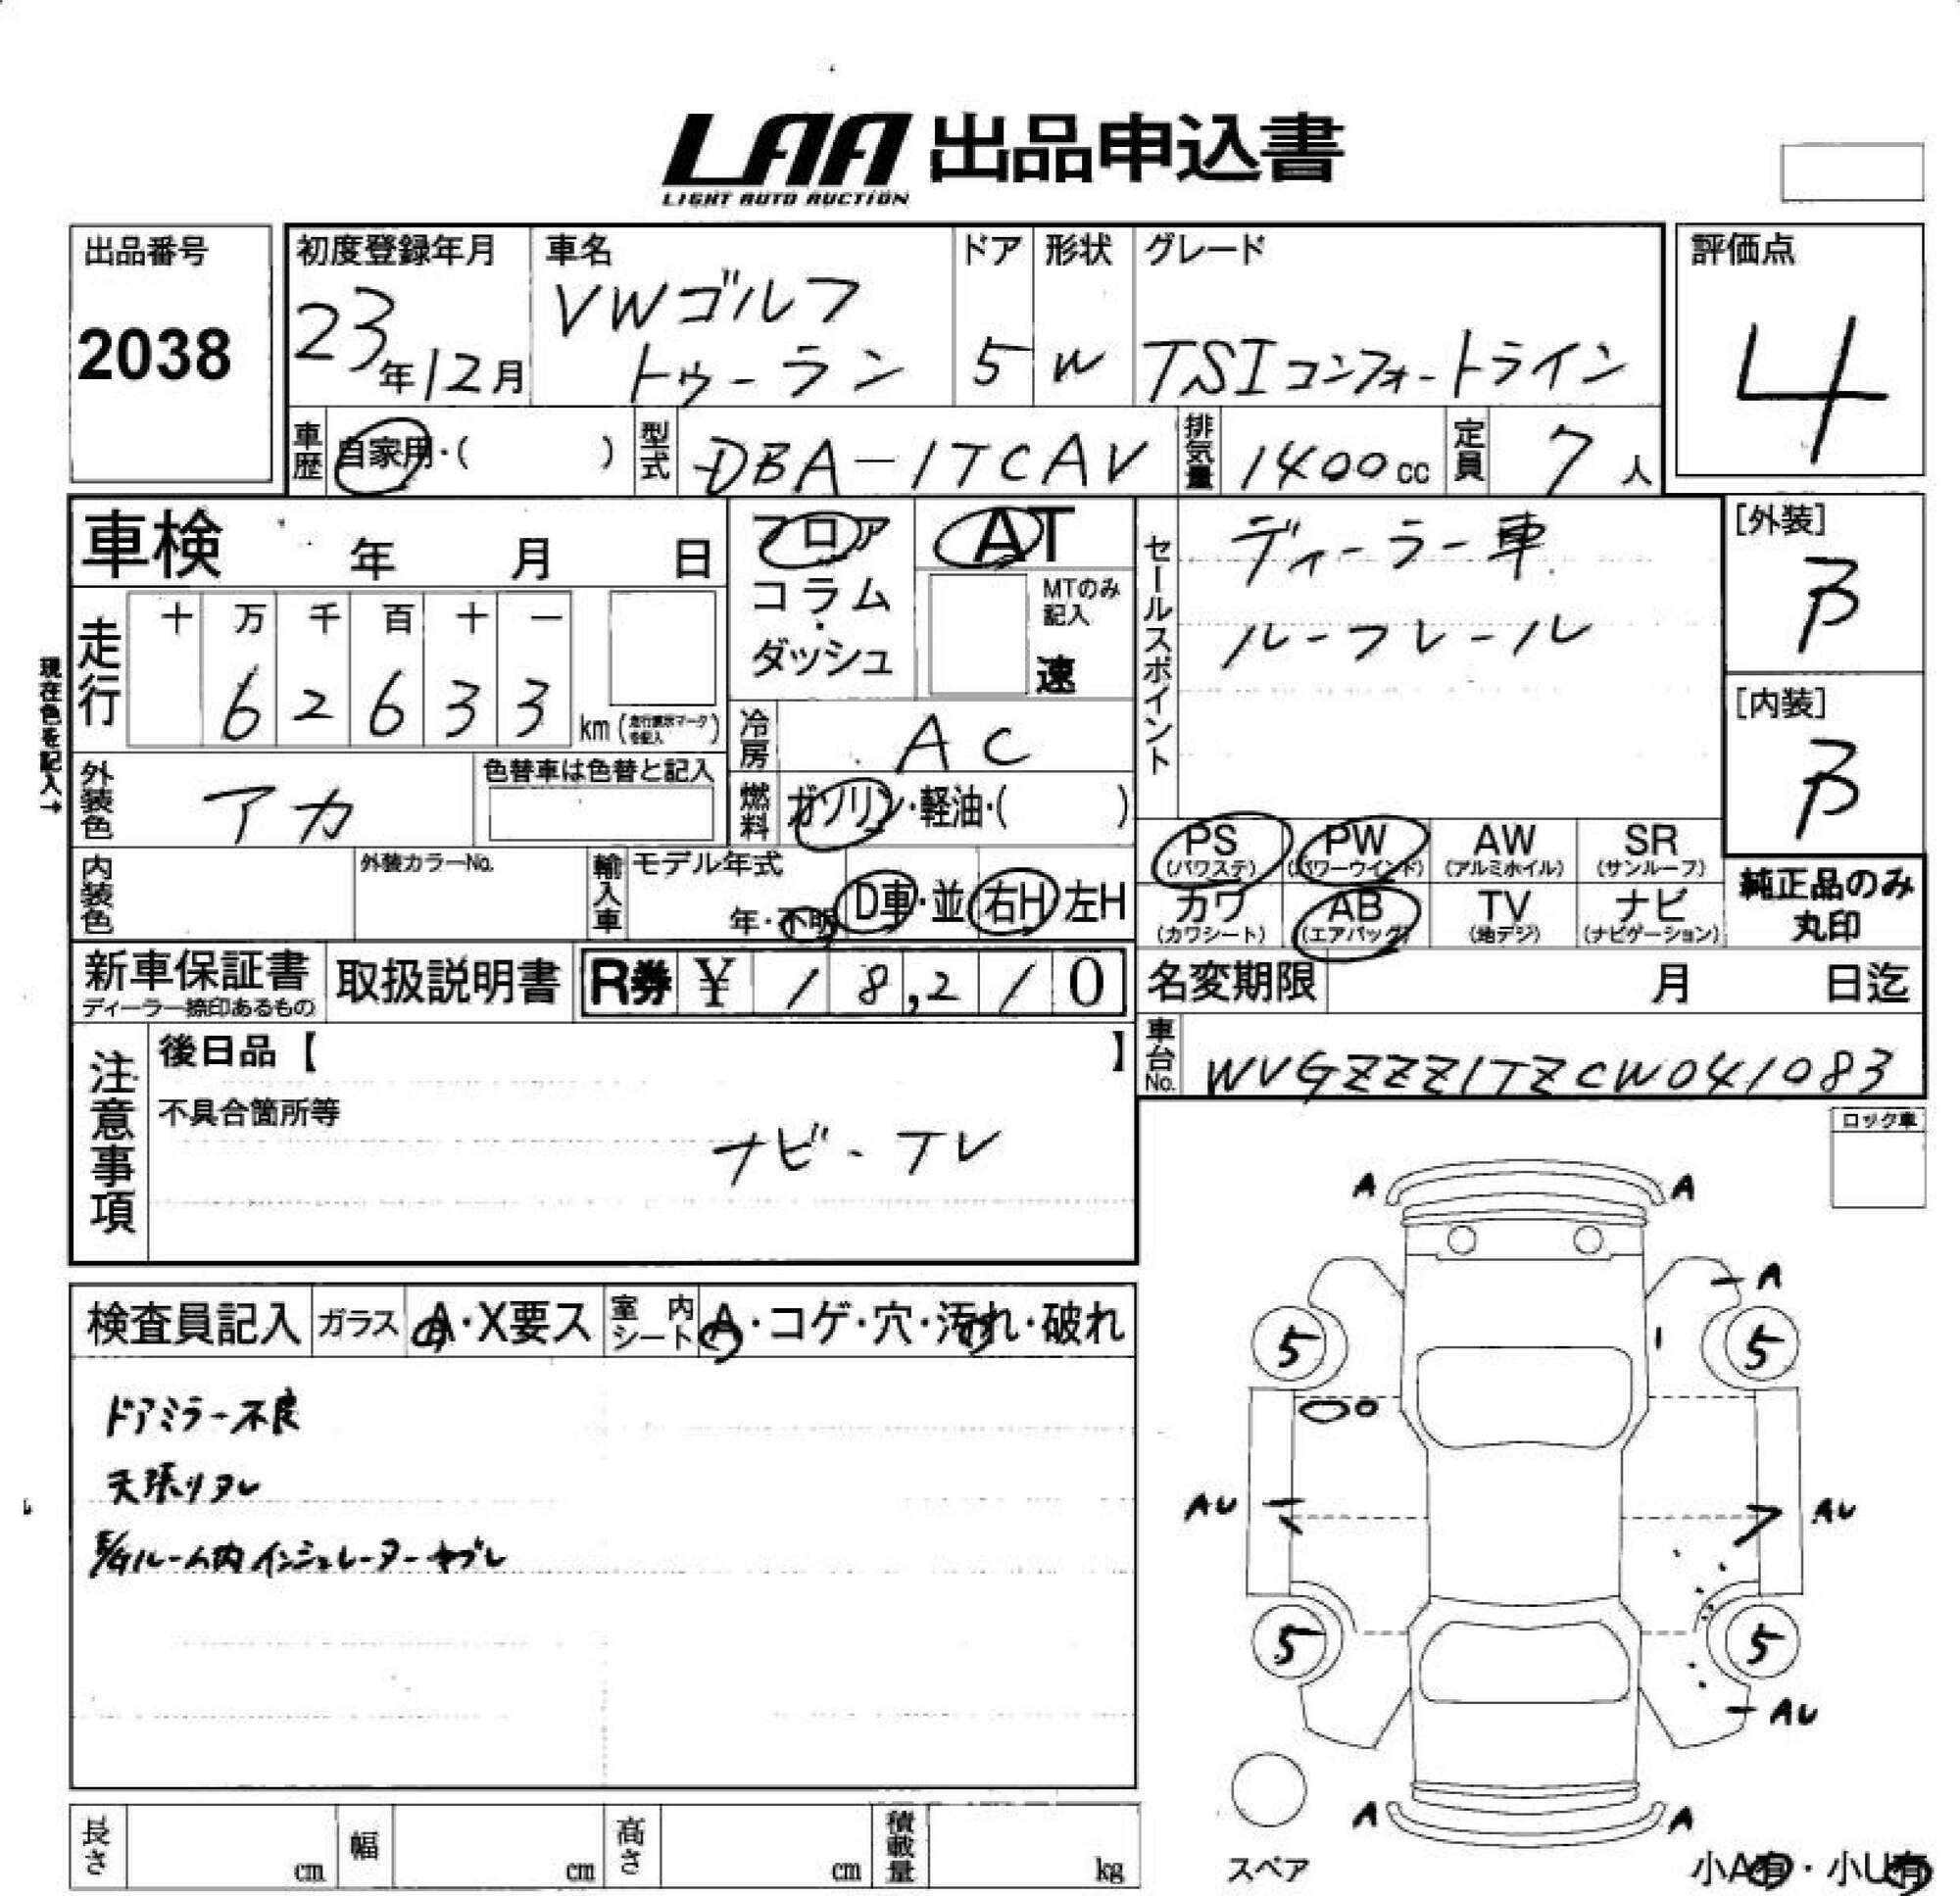 LAA 出品申込書
LIGHT AUTO AUCTION
出品番号
2038
初度登録年月
23年12月
車名
VWゴルフ
トゥーラン
ドア
5
形状
W
グレード
TSIコンフォートライン
評価点
4
車歴 自家用・( )
型式 DBA-1TCAV
排気量 1400cc
定員 7人
車検 年 月 日
フロア
コラム
・
ダッシュ
AT
MTのみ
記入
速
セールスポイント
ディーラー車
ルーフレール
[外装]
B
[内装]
B
現在色を記入→
走行
十 万 千 百 十 一
6 2 6 3 3
km
冷房 AC
外装色 アカ
色替車は色替と記入
燃料 ガソリン・軽油・( )
PS (パワステ)
PW (パワーウインド)
AW (アルミホイル)
SR (サンルーフ)
カワ (カワシート)
AB (エアバッグ)
TV (地デジ)
ナビ (ナビゲーション)
純正品のみ
丸印
内装色
外装カラーNo.
輸入車
モデル年式
年・不明
D車・並
右H 左H
新車保証書
ディーラー捺印あるもの
取扱説明書
R券 ¥ 18,210
名変期限 月 日迄
車台No. WVGZZZ1TZCW041083
注意事項
後日品【 】
不具合箇所等
ナビ-TV
ロック車
検査員記入
ガラス A・X要ス
室内シート A・コゲ・穴・汚れ・破れ
ドアミラー不良
天張りタレ
E/Gルーム内インシュレーターヤブレ
A A
A
5 5
AU AU
5 5
AU
A A
スペア
小A有・小U有
長さ cm
幅 cm
高さ cm
積載量 kg